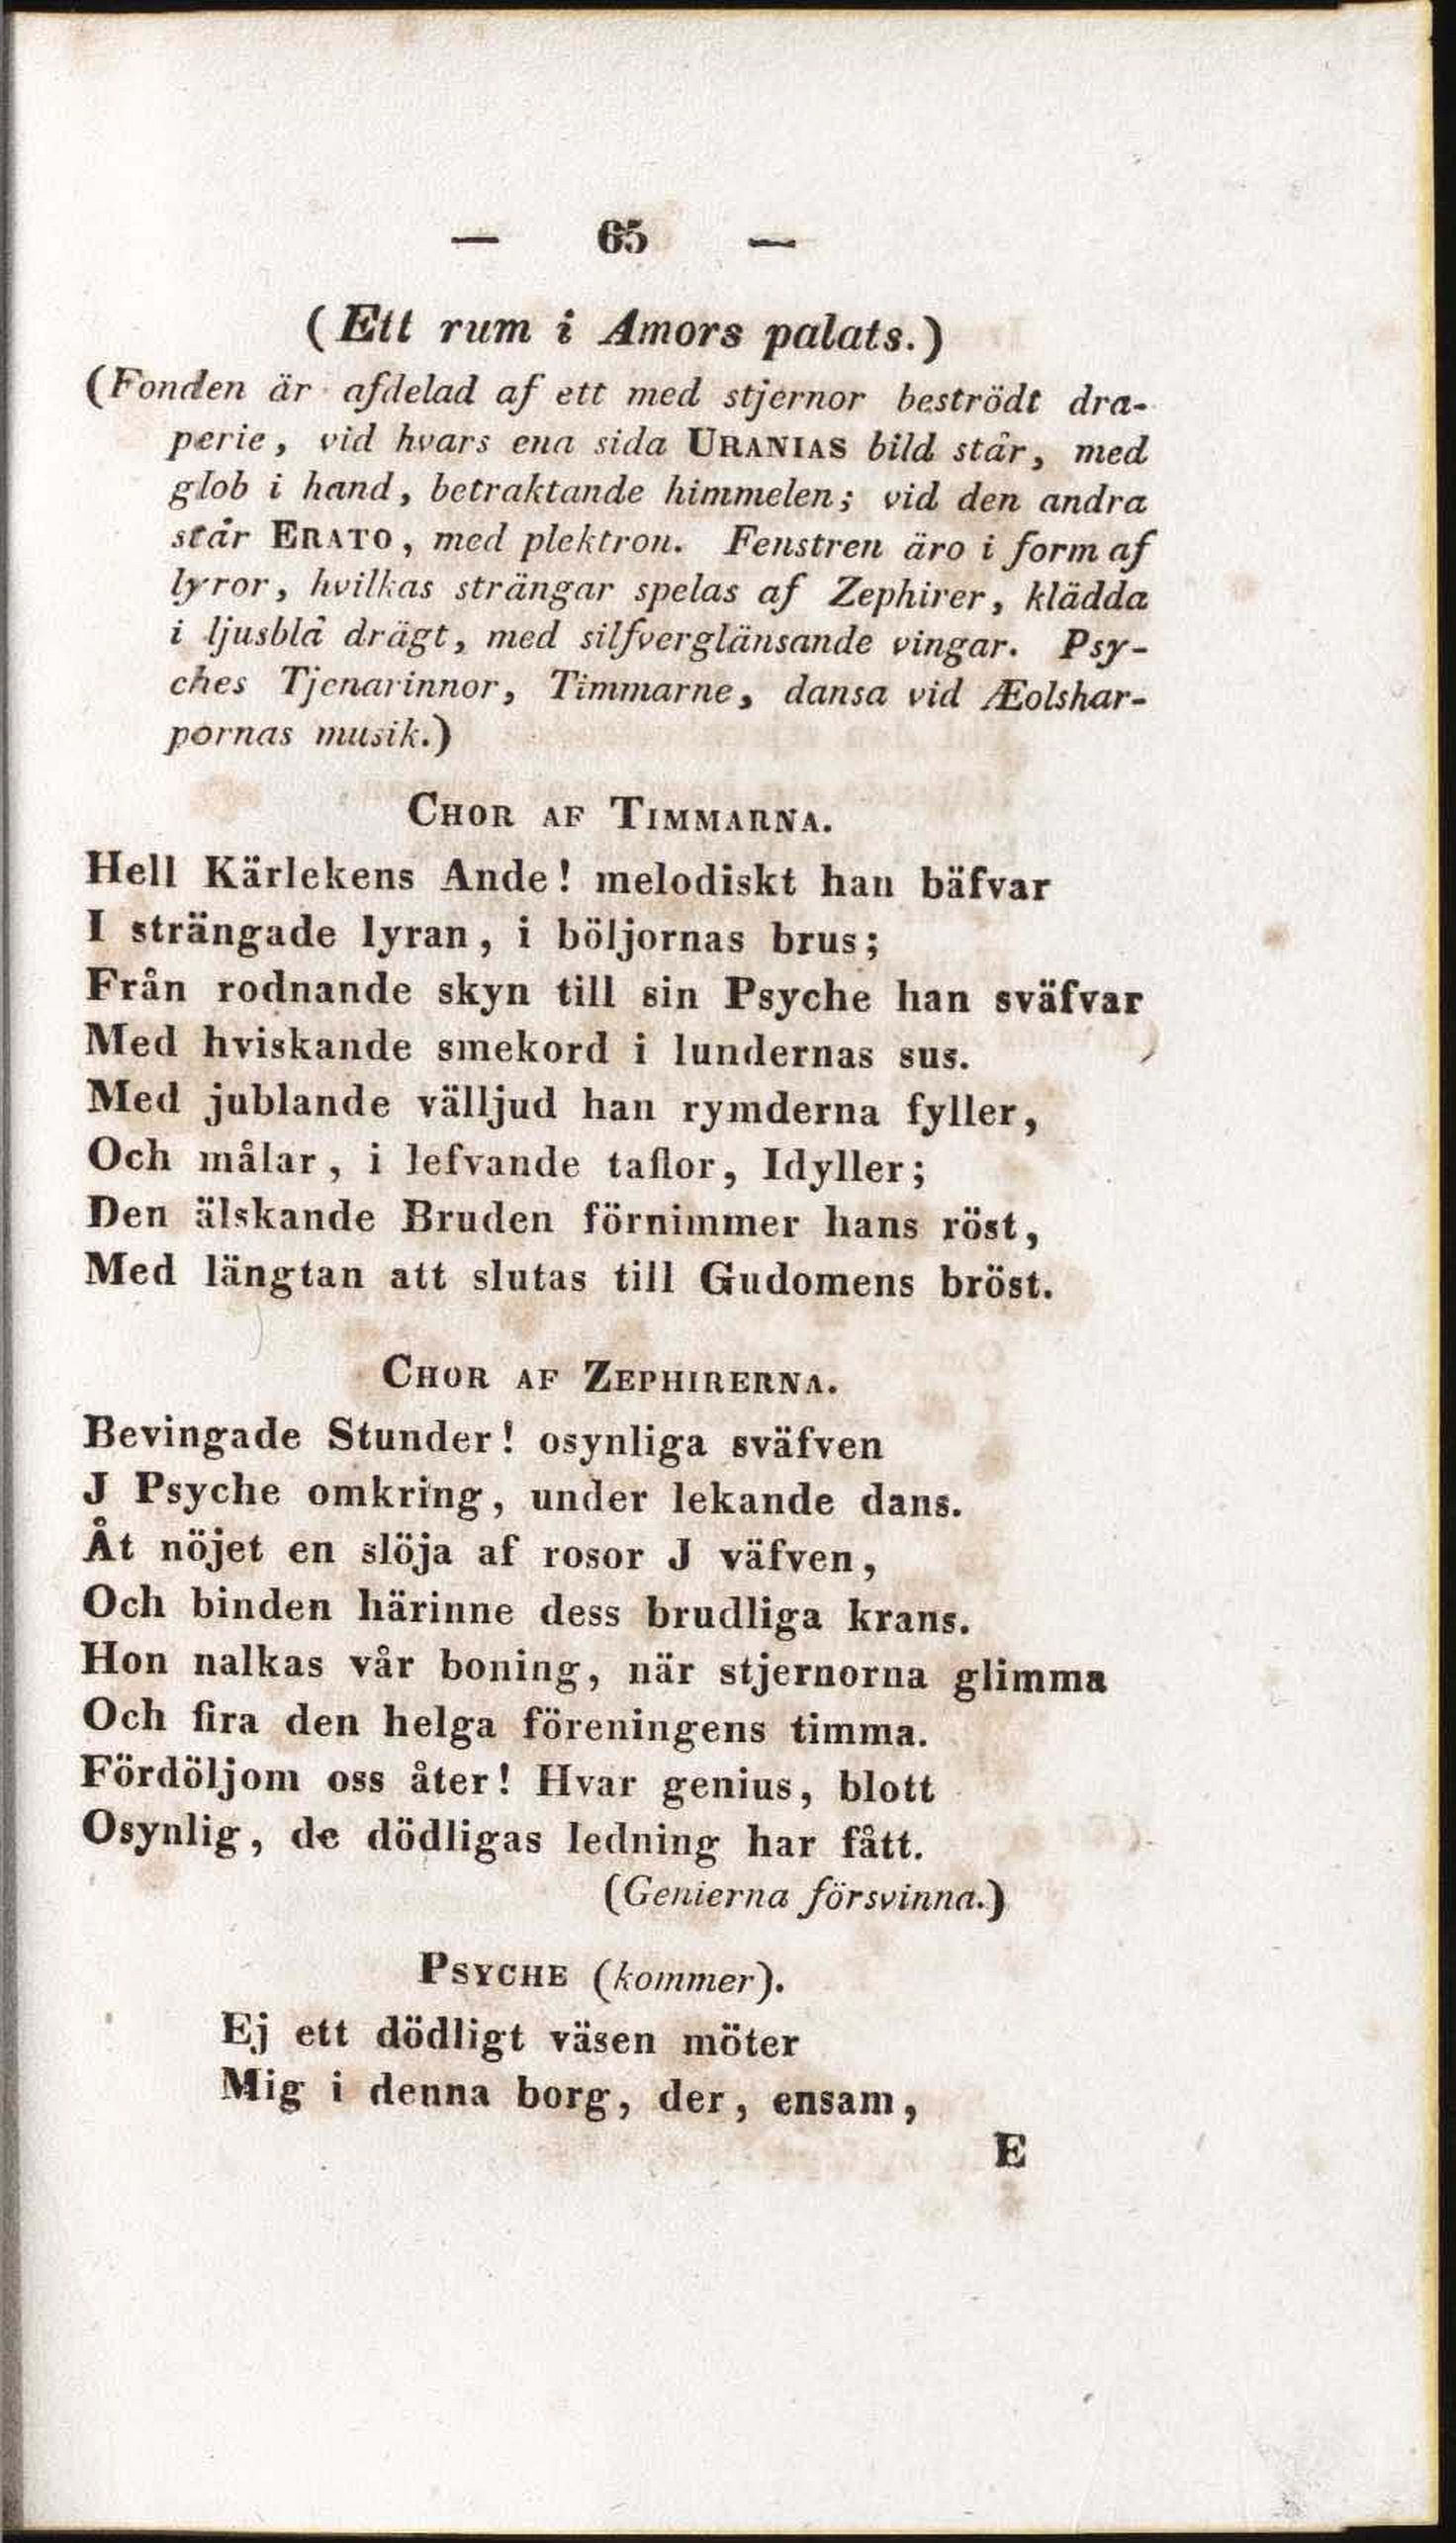 — 65 —
(Ett rum i Amors palats.)
(Fonden är afdelad af ett med stjernor beströdt dra-
perie, vid hvars ena sida URANIAS bild står, med
glob i hand, betraktande himmelen; vid den andra
står ERATO, med plektron. Fenstren äro i form af
lyror, hvilkas strängar spelas af Zephirer, klädda
i ljusblå drägt, med silfverglänsande vingar. Psy-
ches Tjenarinnor, Timmarne, dansa vid Æolshar-
pornas musik.)
CHOR AF TIMMARNA.
Hell Kärlekens Ande! melodiskt han bäfvar
I strängade lyran, i böljornas brus;
Från rodnande skyn till sin Psyche han sväfvar
Med hviskande smekord i lundernas sus.
Med jublande välljud han rymderna fyller,
Och målar, i lefvande taflor, Idyller;
Den älskande Bruden förnimmer hans röst,
Med längtan att slutas till Gudomens bröst.
CHOR AF ZEPHIRERNA.
Bevingade Stunder! osynliga sväfven
J Psyche omkring, under lekande dans.
Åt nöjet en slöja af rosor J väfven,
Och binden härinne dess brudliga krans.
Hon nalkas vår boning, när stjernorna glimma
Och fira den helga föreningens timma.
Fördöljom oss åter! Hvar genius, blott
Osynlig, de dödligas ledning har fått.
(Genierna försvinna.)
PSYCHE (kommer).
Ej ett dödligt väsen möter
Mig i denna borg, der, ensam,
E